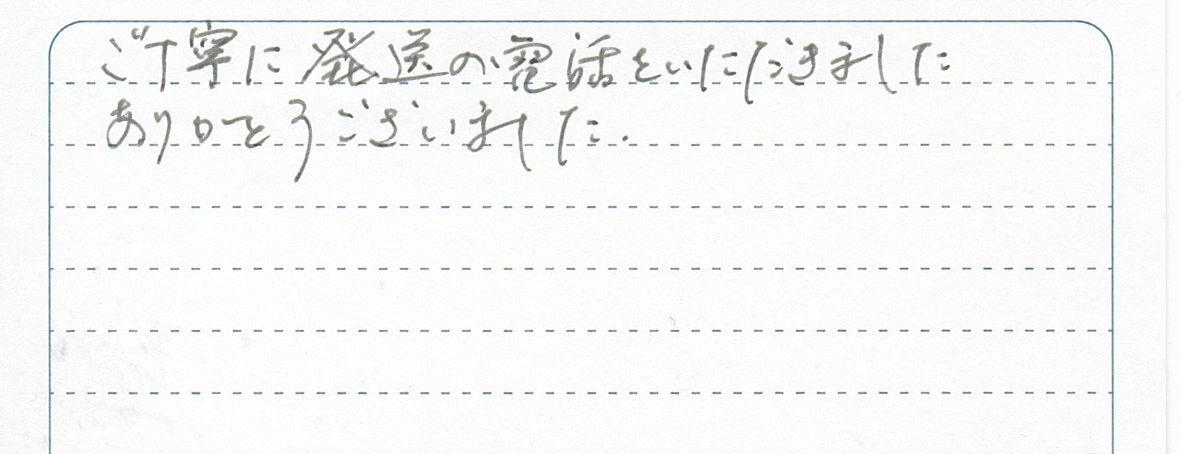 ご丁寧に発送の電話をいただきました
ありがとうございました.